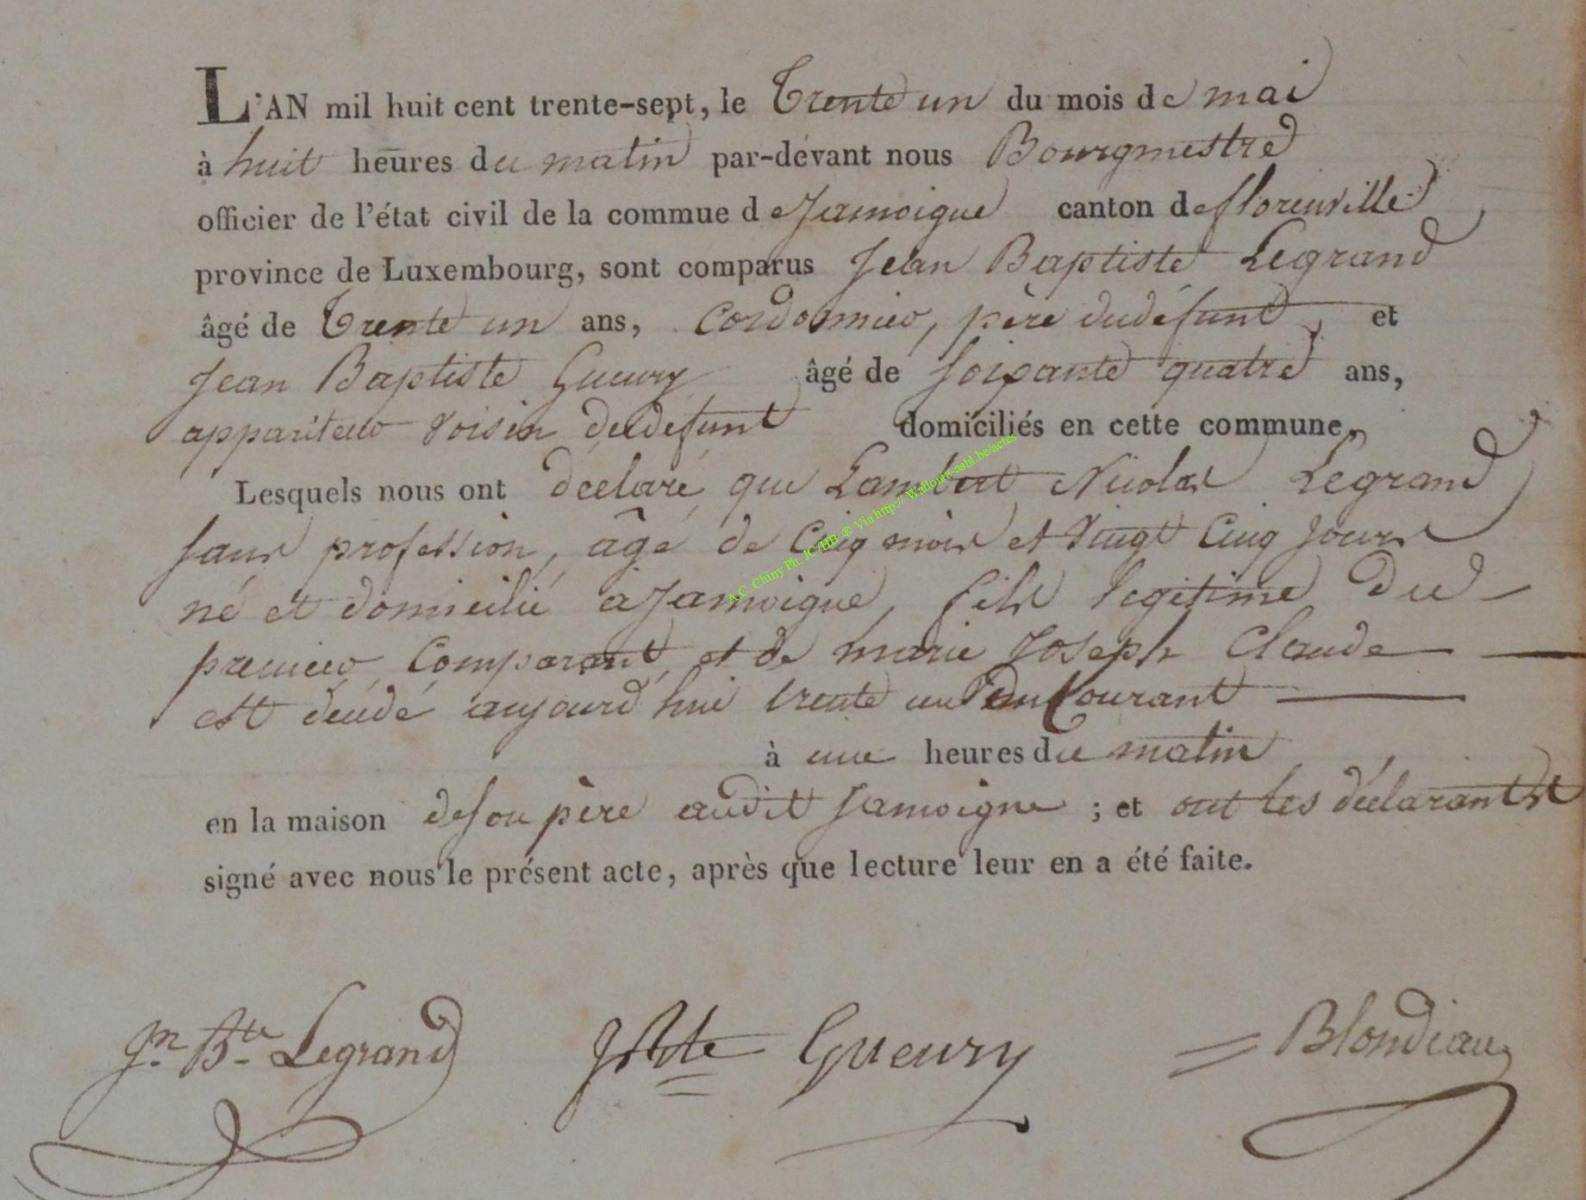 L'AN mil huit cent trente-sept, le Trente un du mois de mai
à huit heures du matin par-dévant nous Bourgmestre
officier de l'état civil de la commue de Jamoigne canton de florenville
province de Luxembourg, sont comparus Jean Baptiste Legrand
âgé de Trente un ans, Cordonnier, père du défunt, et
Jean Baptiste Gueury âgé de soixante quatre ans,
appariteur voisin du défunt domiciliés en cette commune,
Lesquels nous ont déclaré que Lambert Nicolas Legrand
sans profession, âgé de Cinq mois et vingt Cinq Jours
né et domicilié a Jamoigne, fils legitime du
premier Comparant, et de marie Joseph Claude
est décédé aujourd'hui trente un du Courant
à une heures du matin
en la maison de son père audit Jamoigne ; et ont les déclarants
signé avec nous le présent acte, après que lecture leur en a été faite.
Jn. Bte Legrand JBte Gueury Blondiau